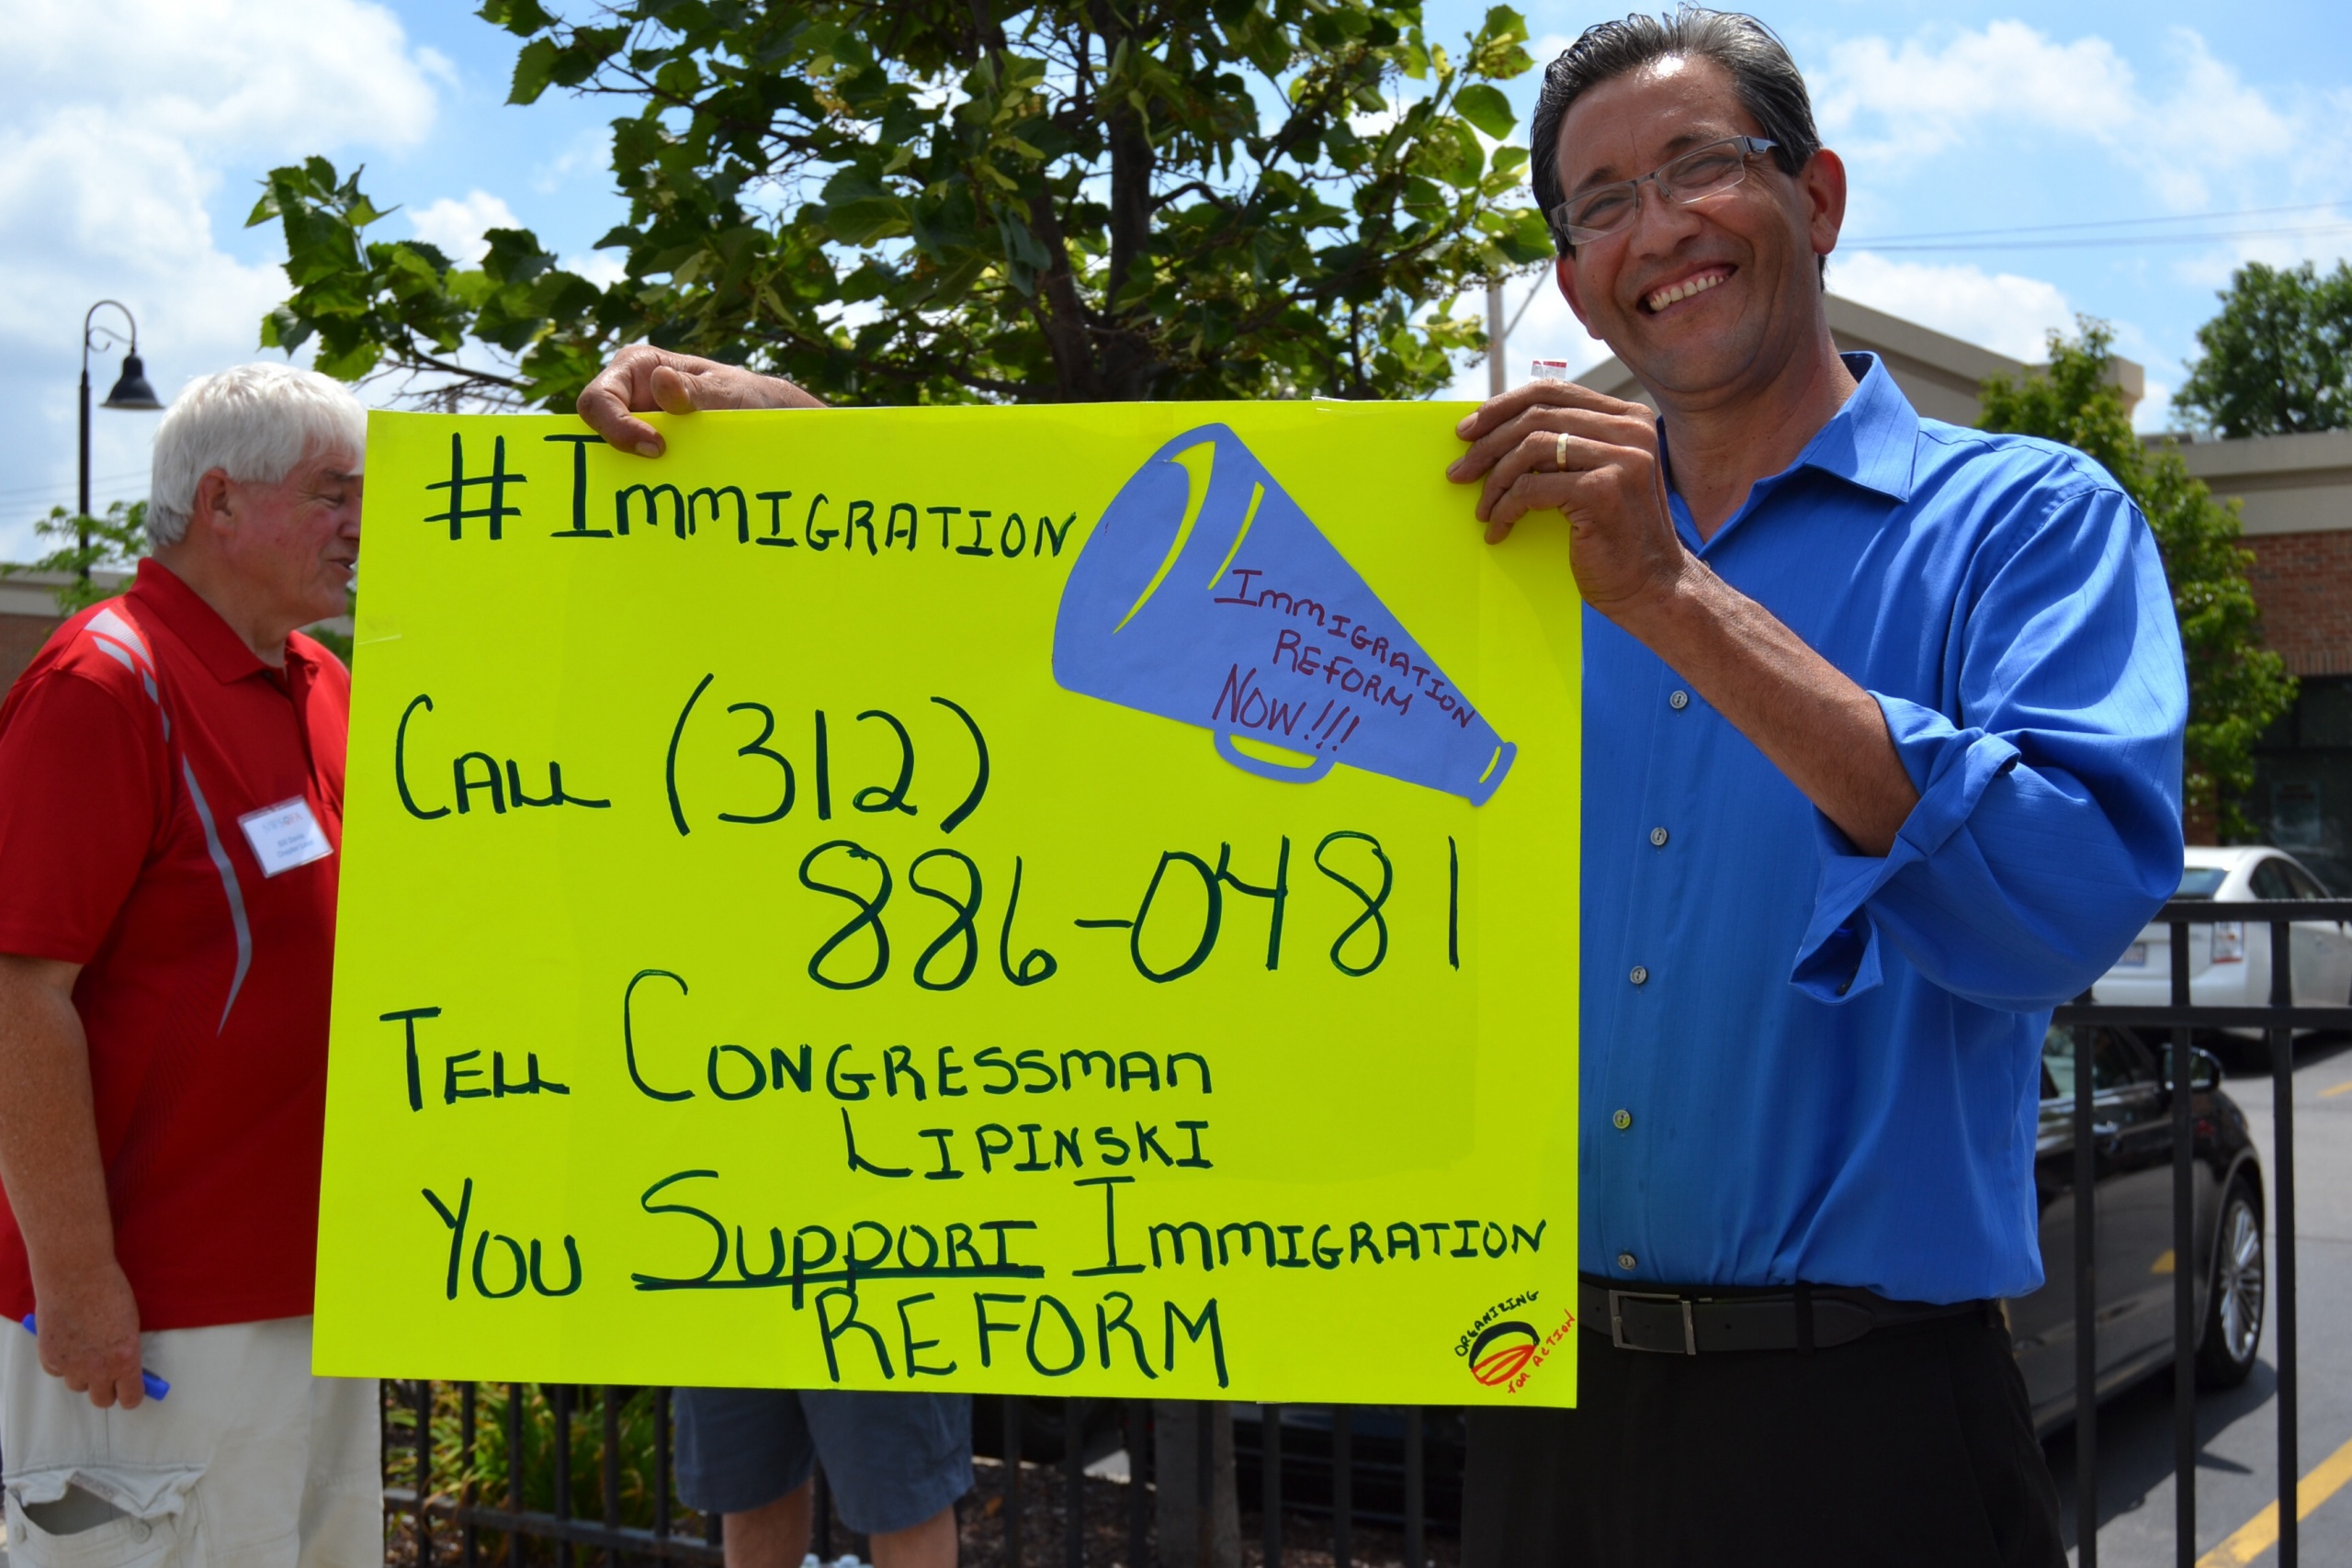 #Immigration
Immigration
Reform
Now!!!
Call (312)
886-0481
Tell Congressman
Lipinski
You Support Immigration
Reform
Organizing
for Action